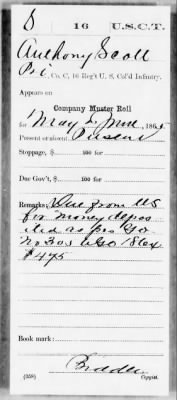 S 16 U.S.C.T.
Anthony Scott
Pvt, Co. C, 16 Reg't U. S. Col'd Infantry.
Appears on
Company Muster Roll
for May & June, 1865
Present or absent Present
Stoppage, $ 100 for
Due Gov't, $ 100 for
Remarks: Due from US
for money depos
ited as per GO
No 305 WDO 1864
$475
Book mark:
(358) Copyist.